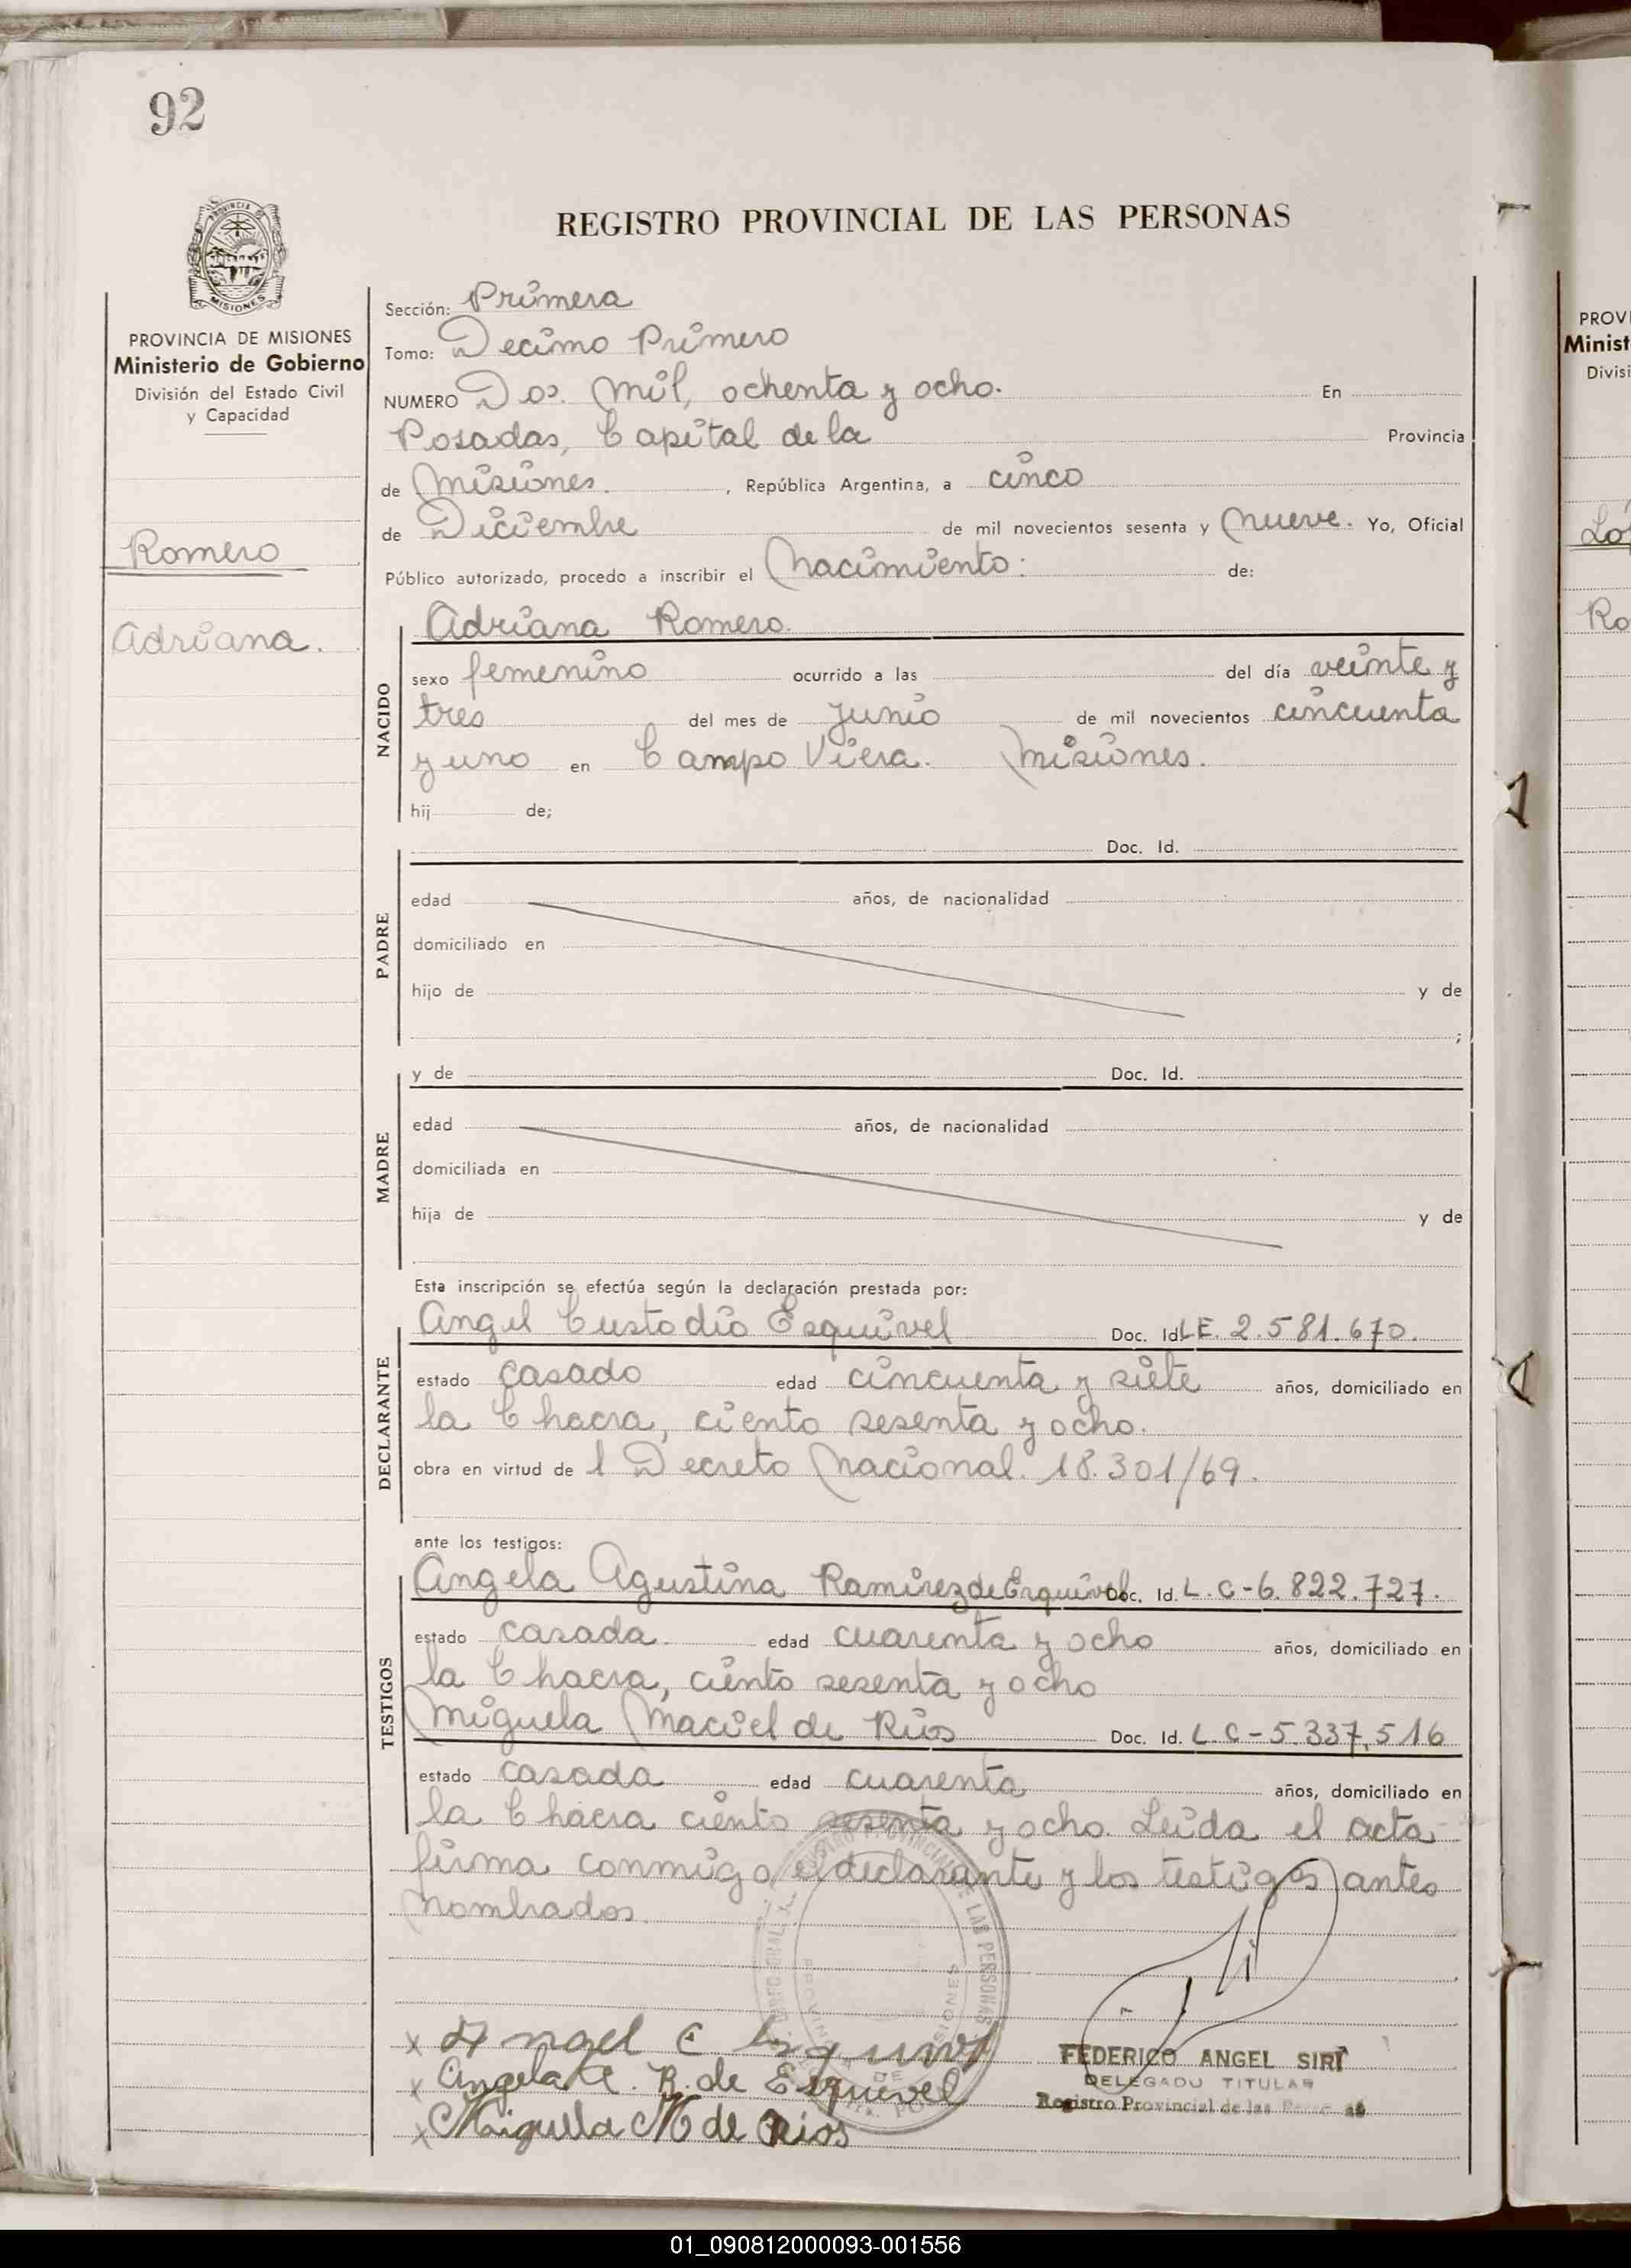 92
REGISTRO PROVINCIAL DE LAS PERSONAS
PROVINCIA DE MISIONES
MISIONES
PROVINCIA DE MISIONES
Ministerio de Gobierno
División del Estado Civil
y Capacidad
Romero
Adriana.
Sección: Primera
Tomo: Decimo Primero
NUMERO Dos. mil, ochenta y ocho. En
Posadas, Capital de la Provincia
de Misiones. , República Argentina, a cinco
de Diciembre de mil novecientos sesenta y nueve. Yo, Oficial
Público autorizado, procedo a inscribir el Nacimiento: de:
NACIDO
Adriana Romero.
sexo femenino ocurrido a las del día veinte y
tres del mes de junio de mil novecientos cincuenta
y uno en Campo Viera. Misiones.
hij de;
PADRE
Doc. Id.
edad años, de nacionalidad
domiciliado en
hijo de y de
;
MADRE
y de Doc. Id.
edad años, de nacionalidad
domiciliada en
hija de y de
Esta inscripción se efectúa según la declaración prestada por:
DECLARANTE
Angel Custodio Esquivel Doc. Id LE. 2.581.670.
estado casado edad cincuenta y siete años, domiciliado en
la Chacra, ciento sesenta y ocho.
obra en virtud de l Decreto Nacional. 18.301/69.
ante los testigos:
TESTIGOS
Angela Agustina Ramirez de Esquivel Doc. Id. L.C-6.822.727.
estado casada. edad cuarenta y ocho años, domiciliado en
la Chacra, ciento sesenta y ocho
Miguela Maciel de Rios Doc. Id. L.C-5.337.516
estado casada edad cuarenta años, domiciliado en
la Chacra ciento sesenta y ocho. Leida el acta
firma conmigo el declarante y los testigos antes
nombrados.
Angel C Esquivel
Angela A. R. de Esquivel
Miguela M de Rios
FEDERICO ANGEL SIRI
DELEGADO TITULAR
Registro Provincial de las
PROVI
Minist
Divisi
Ló
Ro
01_090812000093-001556